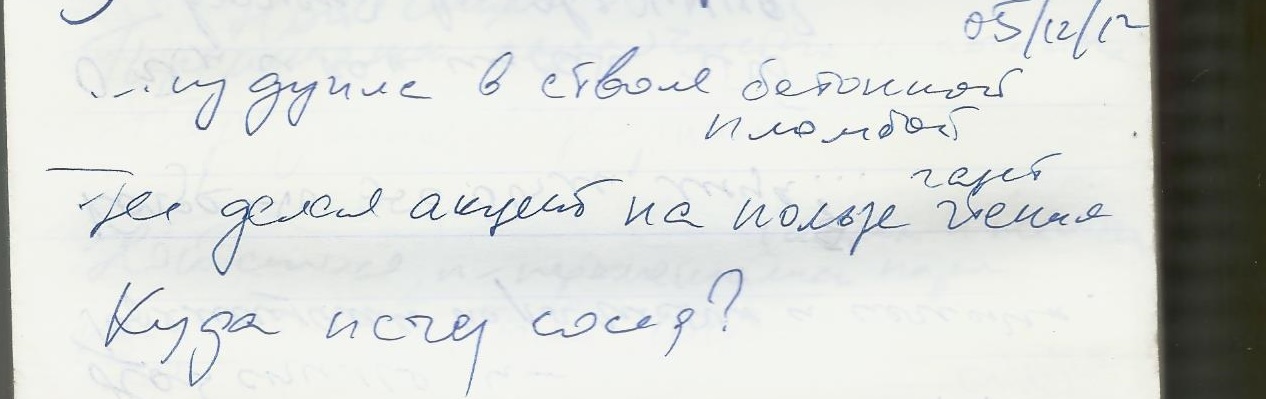 05/12/12
в стволе бетонной
пломбой
газет
делал акцент на пользе чтения
Куда исчез сосед?